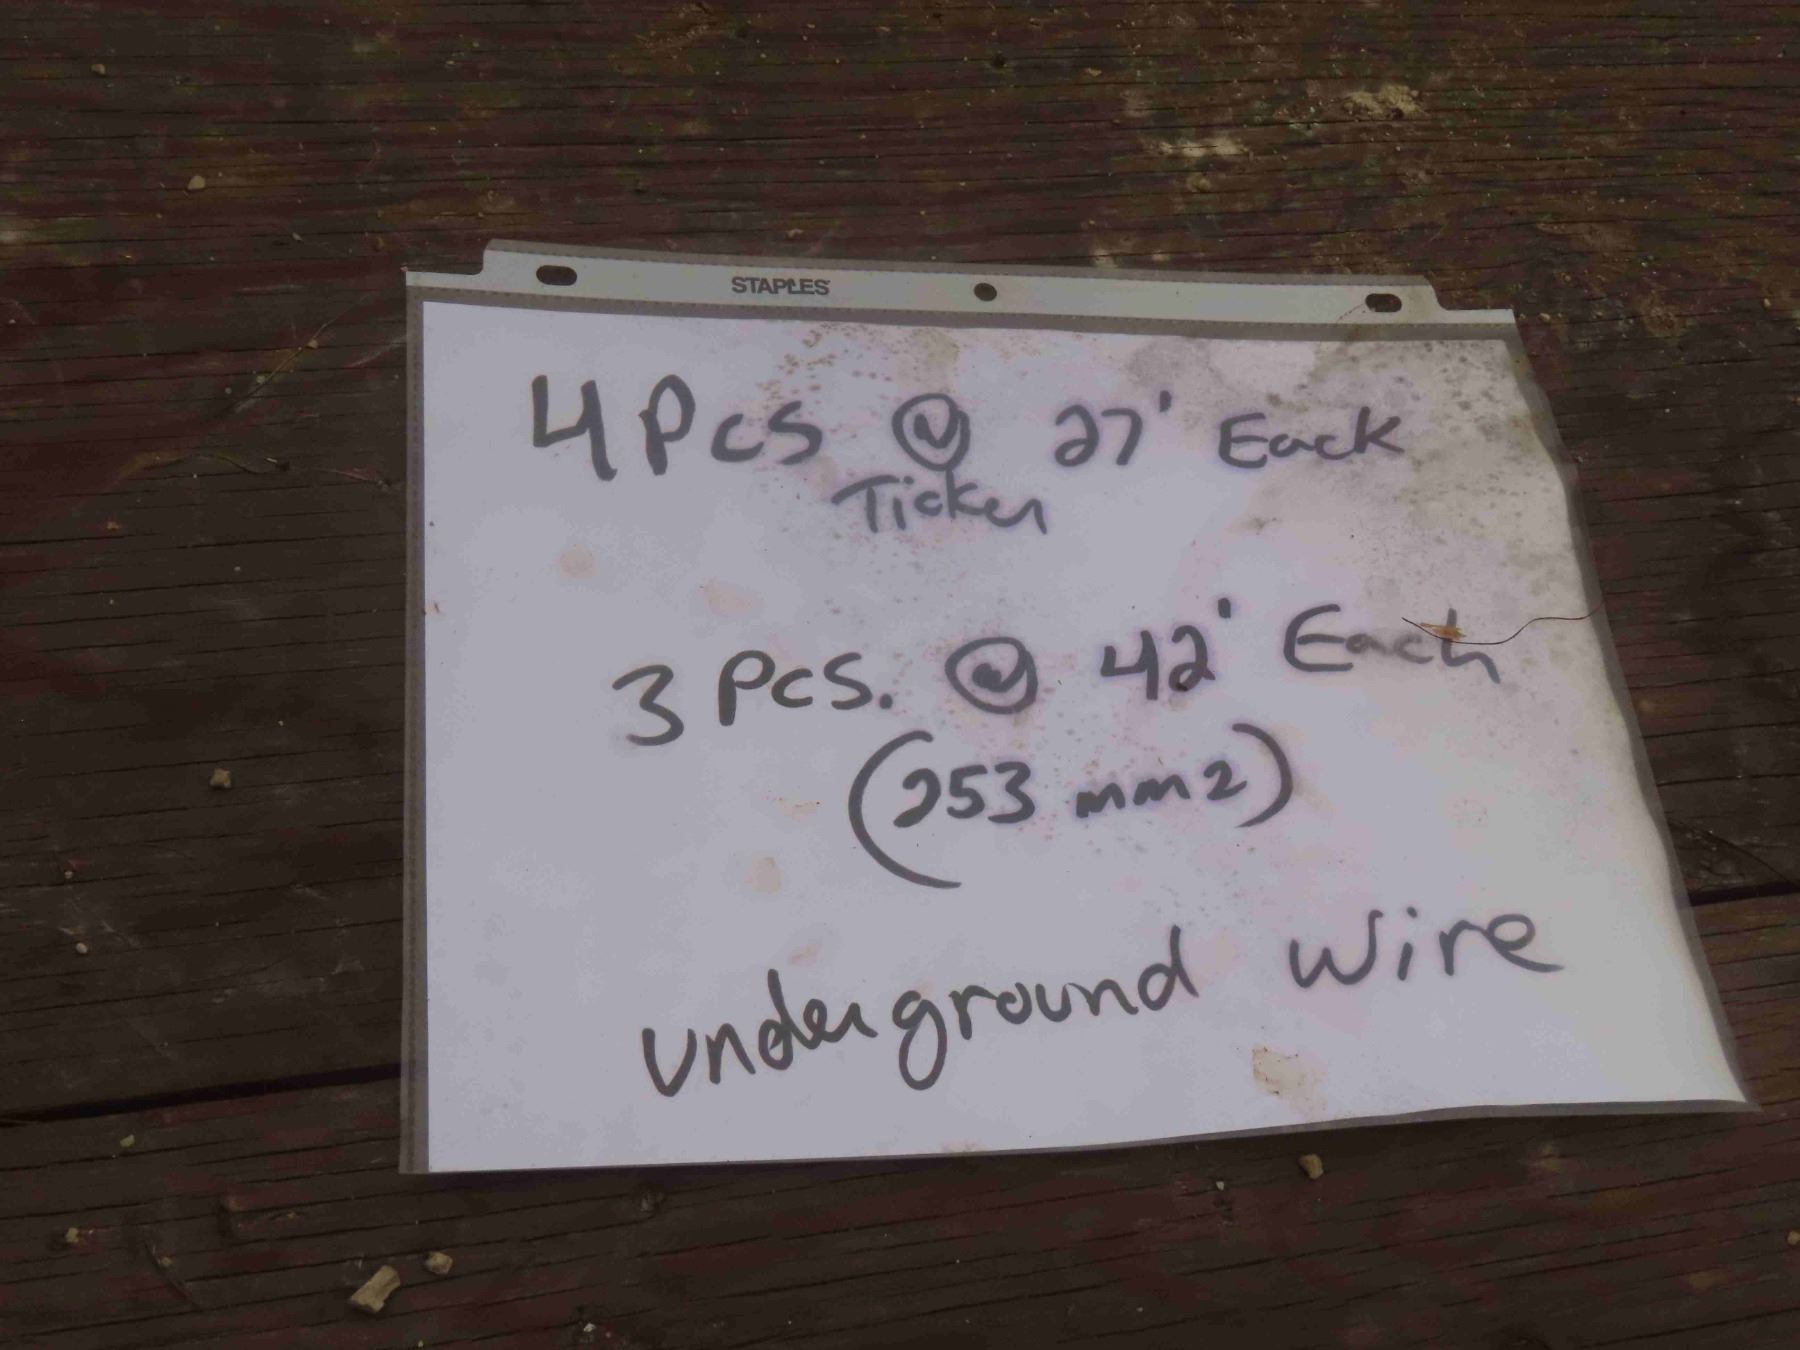 STAPLES
4 Pcs @ 27' Each
Ticker
3 Pcs. @ 42' Each
(253 mm2)
underground wire